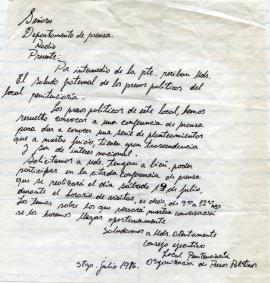 Señores
Departamento de prensa.
Radio
Presente:
Por intermedio de la pte. reciban Uds.
El saludo fraternal de los presos políticos del
local penitenciaria.
Los presos políticos de este local, hemos
resuelto convocar a una conferencia de prensa
para dar a conocer una serie de planteamientos
que a nuestro juicio, tienen gran trascendencia
y son de interés nacional.
Solicitamos a Uds. tengan a bien, poder
participar en la citada conferencia de prensa
que se realizará el día sábado 19 de Julio,
durante el horario de visitas, es decir, de 9 a 12
Los temas sobre los que versará nuestra conversación
se los haremos llegar oportunamente.
Saludamos a Uds. Atentamente
Consejo ejecutivo
Local Penitenciaria
Organización de Presos Políticos
Stgo. Julio 1986.